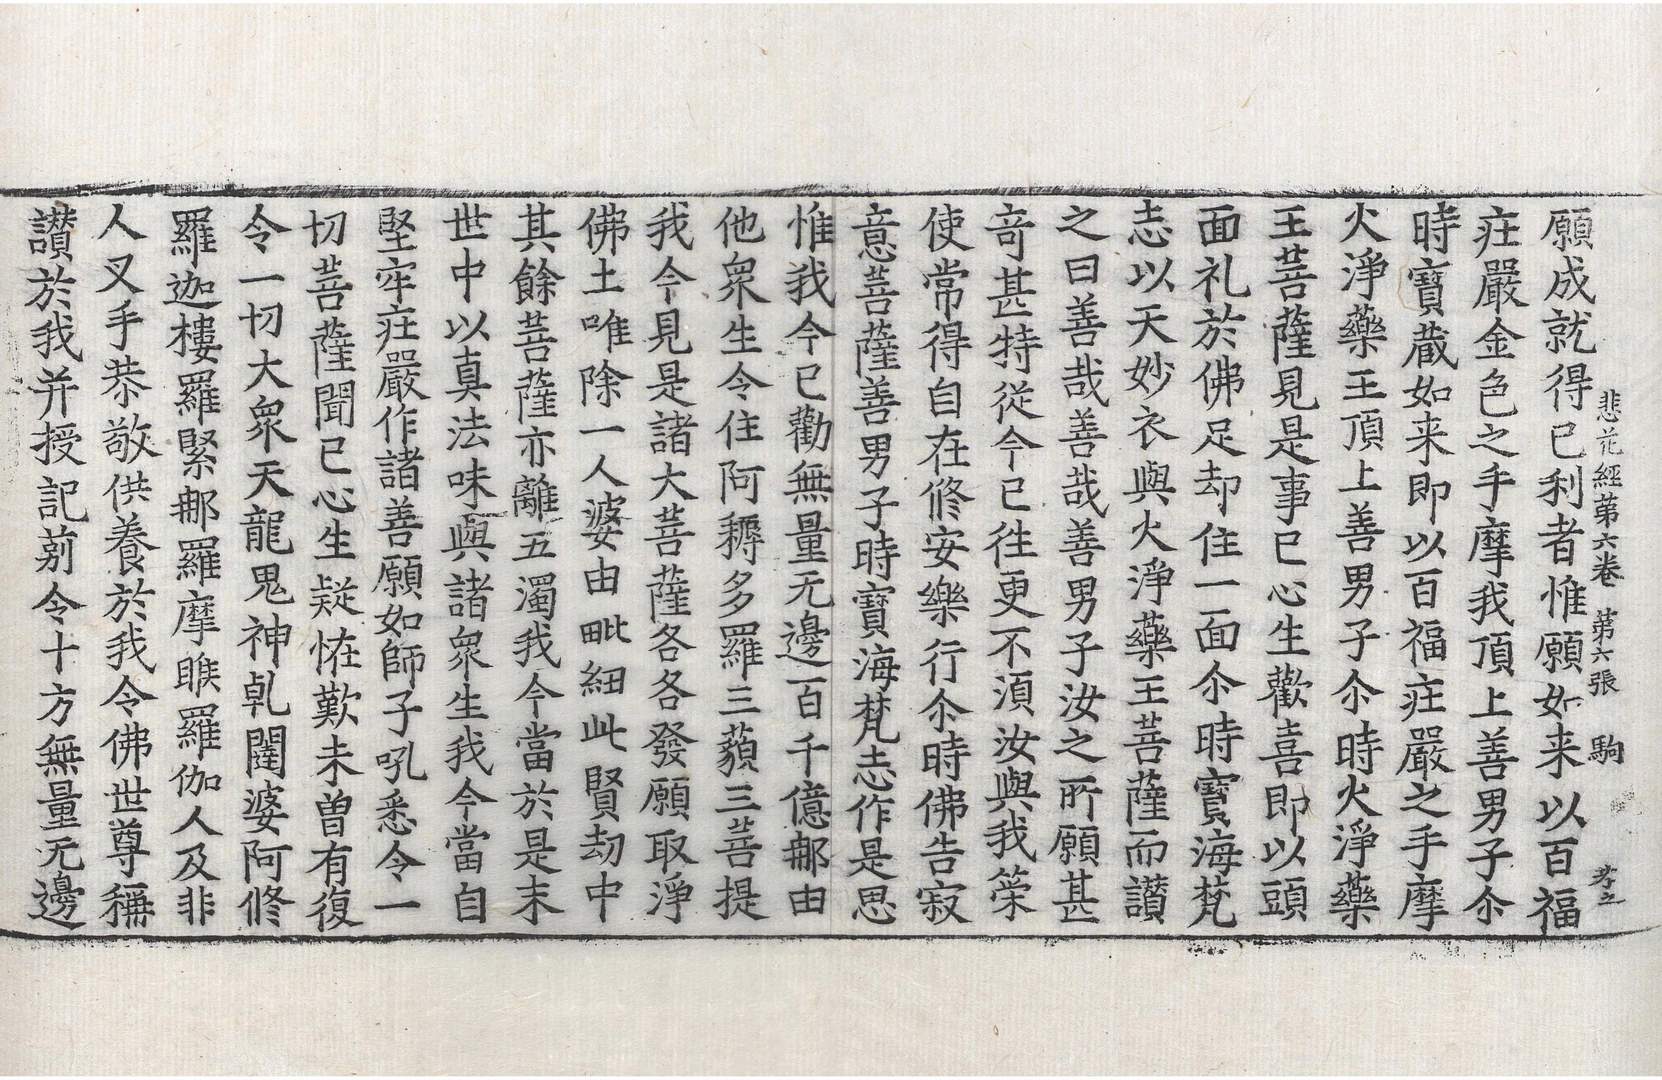 悲花經第六卷 第六張 駒 孝立
願成就得已利者惟願如来以百福
㽵嚴金色之手摩我頂上善男子尒
時寶蔵如来即以百福㽵嚴之手摩
火淨藥王頂上善男子尒時火淨藥
王菩薩見是事已心生歡喜即以頭
面礼於佛足却住一面尒時寶海梵
志以天妙衣與火淨藥王菩薩而讃
之曰善哉善哉善男子汝之所願甚
竒甚特從今已往更不湏汝與我䇿
使常得自在修安樂行尒時佛告寂
意菩薩善男子時寶海梵志作是思
惟我今已勸無量无邊百千億那由
他衆生令住阿耨多羅三藐三菩提
我今見是諸大菩薩各各發願取淨
佛土唯除一人婆由毗紐此賢劫中
其餘菩薩亦離五濁我今當於是末
世中以真法味與諸衆生我今當自
堅牢㽵嚴作諸善願如師子吼悉令一
切菩薩聞已心生疑恠歎未曽有復
令一切大衆天龍鬼神乹闥婆阿修
羅迦樓羅緊那羅摩睺羅伽人及非
人叉手恭敬供養於我令佛世尊稱
讃於我并授記莂令十方無量无邊